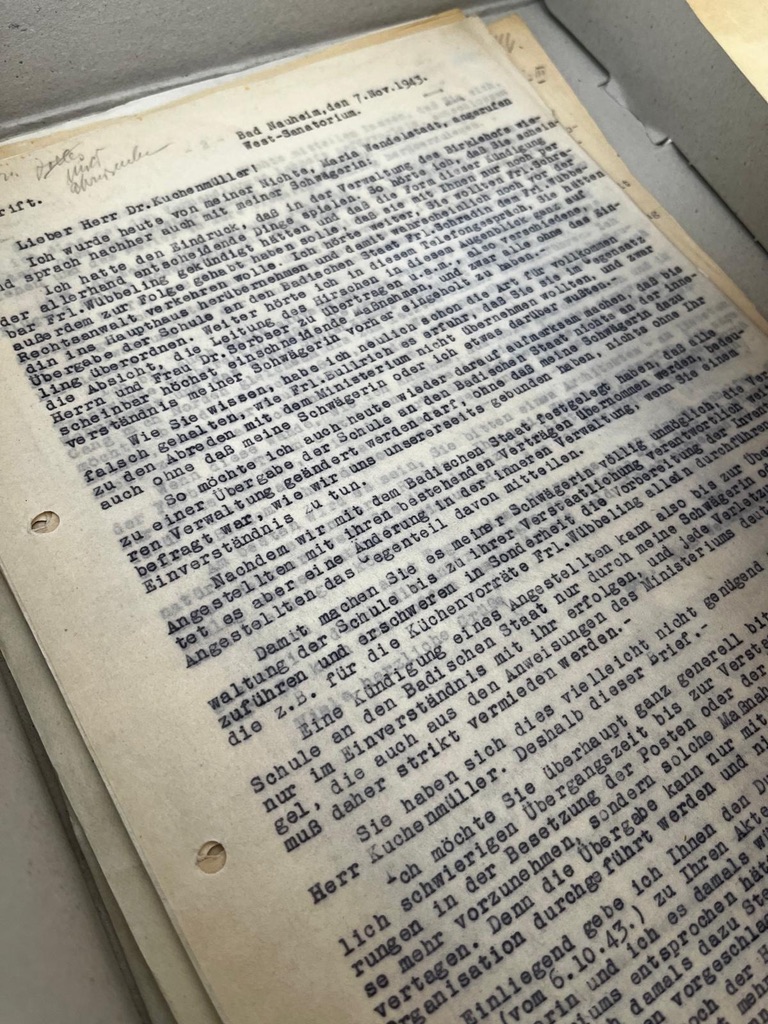 Bad Nauheim, den 7.Nov.1943.
West-Sanatorium.
rift.
Lieber Herr Dr.Kuchenmüller!
Ich wurde heute von meiner Nichte, Maria Wendelstadt, angerufen
d sprach nachher auch mit meiner Schwägerin:
Ich hatte den Eindruck, daß in der Verwaltung des Birklehofs wie-
der allerhand entscheidende Dinge spielen. So hörte ich, daß Sie schein-
bar Frl.Wübbeling gekündigt hätten und daß die Form dieser Kündigung
außerdem zur Folge gehabt haben solle, daß sie mit Ihnen nur noch per
Rechtsanwalt verkehren wolle. Ich hörte weiter, Sie wollten Frl.Schra-
din ins Haupthaus herübernehmen und damit wahrscheinlich noch vor der
Übergabe der Schule an den Badischen Staat Frl.Schradin dem Frl.Wübbe-
ling überordnen. Weiter hörte ich in diesem Telefongespräch, Sie hätten
die Absicht, die Leitung des Hirschen in diesem Augenblick ganz auf
Herrn und Frau Dr.Serbser zu übertragen u.a.m. Also verschiedene,
scheinbar höchst einschneidende Maßnahmen, und zwar alle ohne das Ein-
verständnis meiner Schwägerin vorher eingeholt zu haben.
Wie Sie wissen, habe ich neulich schon die Art für vollkommen
falsch gehalten, wie Frl.Bullrich es erfuhr, daß Sie sie im Gegensatz
zu den Abreden mit dem Ministerium nicht übernehmen wollten, und zwar
auch ohne daß meine Schwägerin oder ich etwas darüber wußten.-
So möchte ich auch heute wieder darauf aufmerksam machen, daß bis
zu einer Übergabe der Schule an den Badischen Staat nichts in der inne-
ren Verwaltung geändert werden darf, ohne daß meine Schwägerin dazu
befragt war, wie wir uns unsererseits gebunden haben, nichts ohne Ihr
Einverständnis zu tun.
Nachdem wir mit dem Badischen Staat festgelegt haben, daß alle
Angestellten mit ihren bestehenden Verträgen übernommen werden, bedeu-
tet es aber eine Änderung in der inneren Verwaltung, wenn Sie einem
Angestellten das Gegenteil davon mitteilen.
Damit machen Sie es meiner Schwägerin völlig unmöglich, die Ve
waltung der Schule bis zu ihrer Verstaatlichung verantwortlich we
zuführen und erschweren in Sonderheit die Vorbereitung der Inven
die z.B. für die Küchenvorräte Frl.Wübbeling allein durchführen
Eine Kündigung eines Angestellten kann also bis zur Über
Schule an den Badischen Staat nur durch meine Schwägerin od
nur im Einverständnis mit ihr erfolgen, und jede Verletzu
gel, die auch aus den Anweisungen des Ministeriums deut
muß daher strikt vermieden werden.-
Sie haben sich dies vielleicht nicht genügend
Herr Kuchenmüller. Deshalb dieser Brief.-
Ich möchte Sie überhaupt ganz generell bit
lich schwierigen Übergangszeit bis zur Versta
rungen in der Besetzung der Posten oder der
se mehr vorzunehmen, sondern solche Maßnah
vertagen. Denn die Übergabe kann nur mit
rganisation durchgeführt werden und ni
Einliegend gebe ich Ihnen den Du
(vom 6.10.43.) zu Ihren Akte
rin und ich es damals wü
riums entsprochen hätt
t damals dazu Ste
en vorgeschla
och der H
mehr